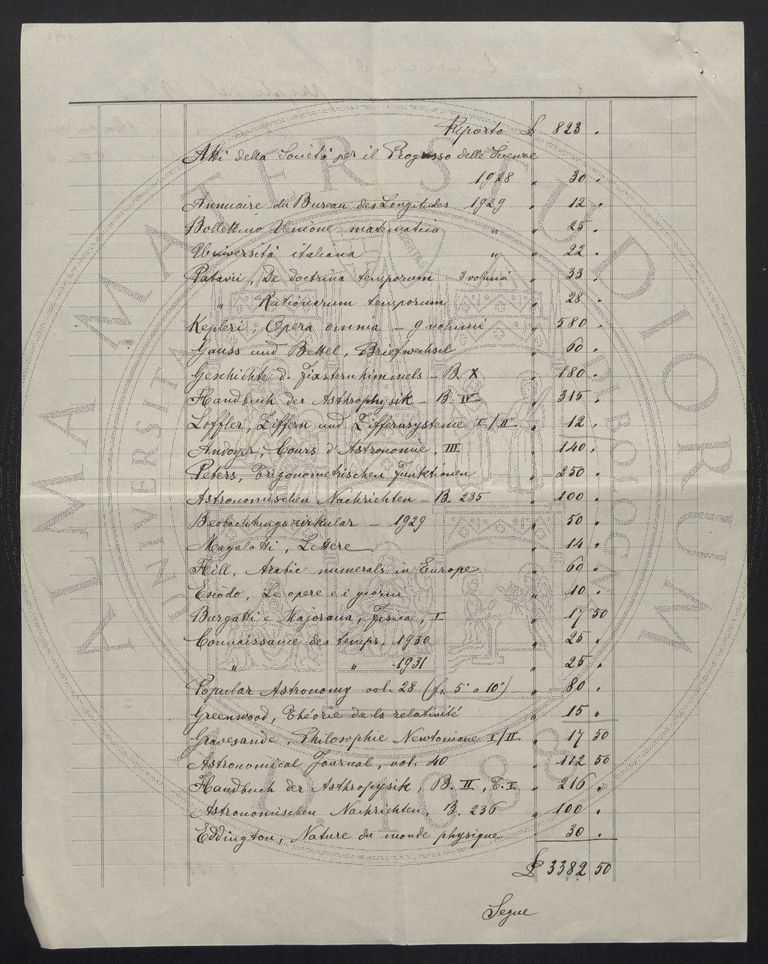 Riporto £ 823 .
Atti della Società per il Progresso delle Scienze
1928 " 30 .
Annuaire du Bureau des Longitudes 1929 " 12 .
Bollettino Unione matematica " " 25 .
Università italiana " 22 .
Patavii, De doctrina temporum - 3 volumi " 33 .
" Rationarum temporum " 28 .
Kepleri, Opera omnia - 9 volumi " 580 .
Gauss und Bessel, Briefwechsel " 60 .
Geschichte d. Fixsternhimmels - B. X " 180 .
Handbuch der Asthrophysik - B. IV " 315 .
Löffler, Ziffern und Ziffernsysteme I/II " 12 .
Andoyer, Cours d'Astronomie, III " 140 .
Peters, Trigonometrischen Funktionen " 250 .
Astronomischen Nachrichten - B. 235 " 100 .
Beobachtungszirkular - 1929 " 50 .
Magalotti, Lettere " 14 .
Hill, Arabic numerals in Europe " 60 .
Esiodo, Le opere e i giorni " 10 .
Burgatti e Majorana, Fisica, I " 17 50
Connaissance des temps, 1930 " 25 .
" " 1931 " 25 .
Popular Astronomy vol. 28 (f. 5° a 10°) " 80 .
Greenwood, Théorie de la relativité " 15 .
Gravesande, Philosophie Newtoniane I/II " 17 50
Astronomical Journal, vol. 40 " 112 50
Handbuch der Asthrophysik, B. II, T. I " 216 .
Astronomischen Nachrichten, B. 236 " 100 .
Eddington, Nature du monde physique " 30 .
£ 3382 50
Segue
ALMA MATER STUDIORUM
UNIVERSITA DI BOLOGNA
A.D. 1088